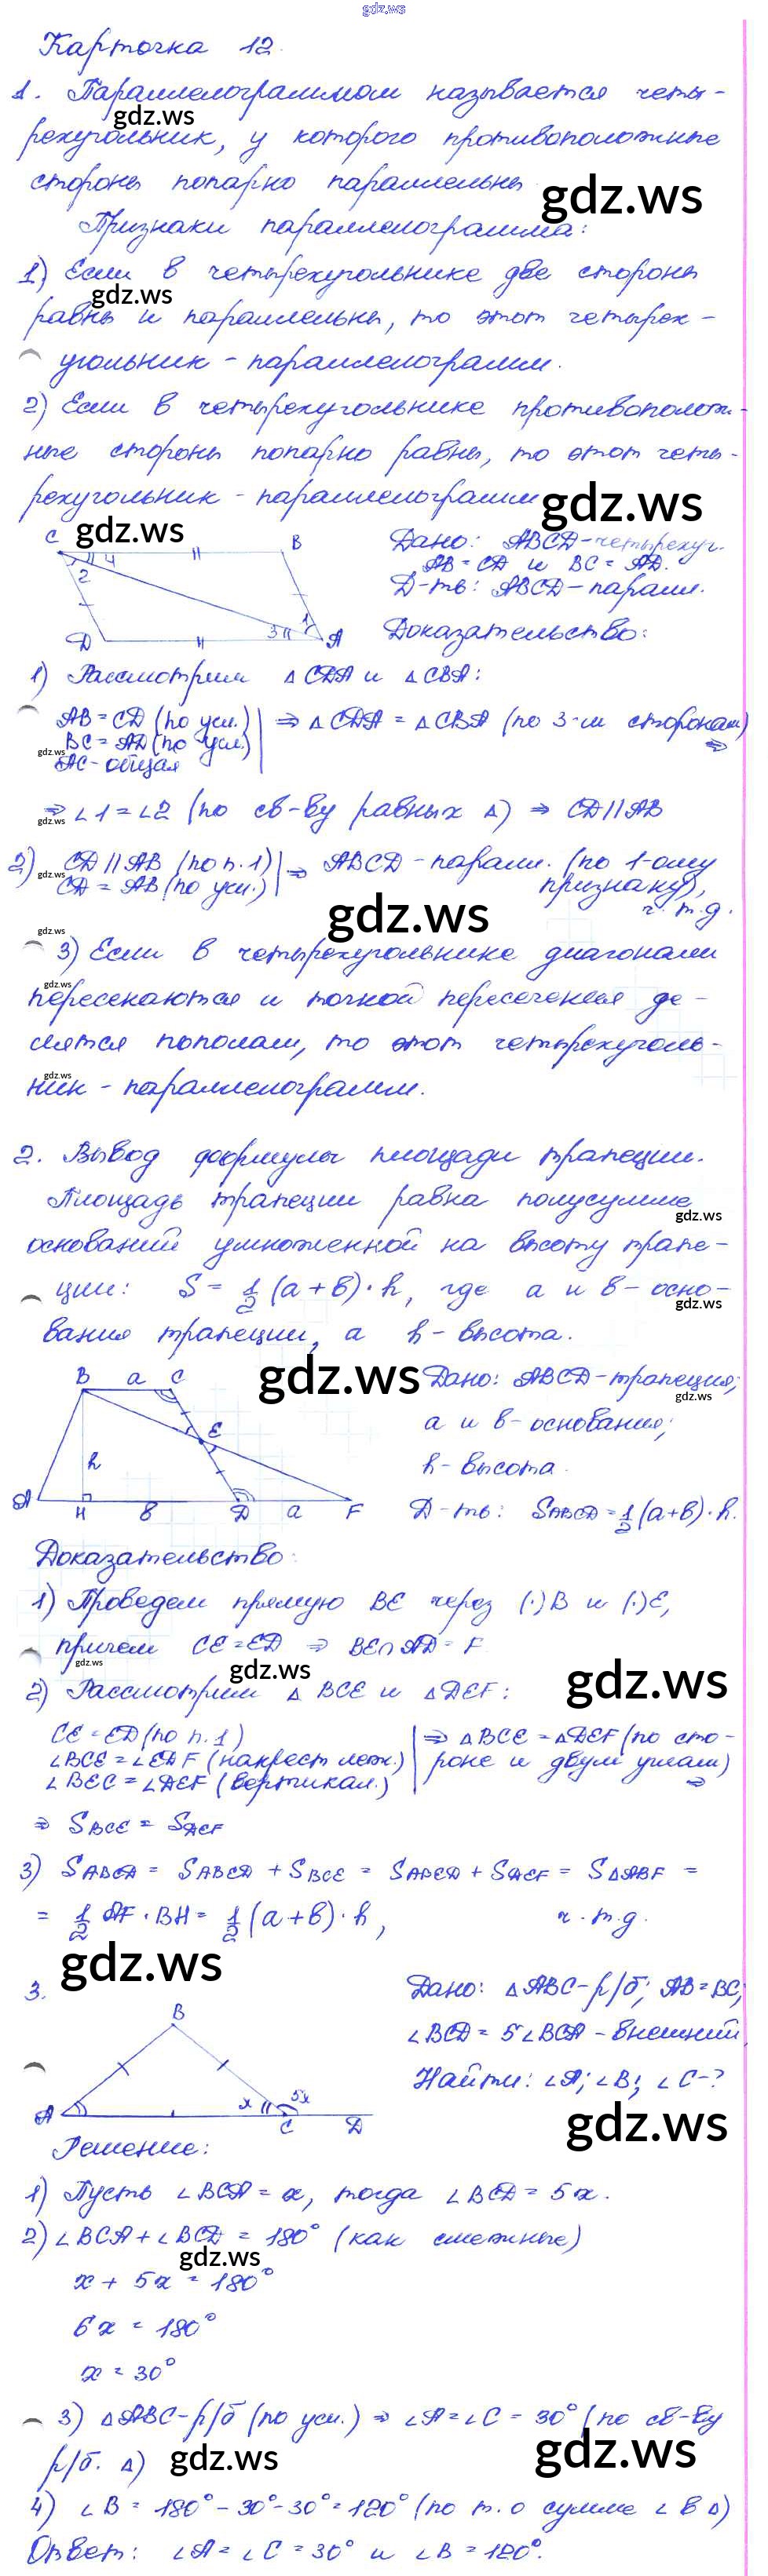 gdz.ws
Карточка 12.
1. Параллелограммом называется четы-
gdz.ws
рехугольник, у которого противоположные
стороны попарно параллельны
gdz.ws
Признаки параллелограмма:
1) Если в четырехугольнике две стороны
gdz.ws
равны и параллельны, то этот четырех-
угольник - параллелограмм.
2) Если в четырехугольнике противополож-
ные стороны попарно равны, то этот четы-
рехугольник - параллелограмм
gdz.ws
gdz.ws
C 4 B
2
1
3
D A
Дано: ABCD - четырехуг.
AB = CD и BC = AD.
Д-ть: ABCD - паралл.
Доказательство:
1) Рассмотрим △ CDA и △ CBA:
AB = CD (по усл.) ⇒ △ CDA = △ CBA (по 3-м сторонам)
BC = AD (по усл.) ⇒
gdz.ws
AC - общая
⇒ ∠1 = ∠2 (по св-ву равных △) ⇒ CD || AB
gdz.ws
2) CD || AB (по п. 1) ⇒ ABCD - паралл. (по 1-ому
gdz.ws
CD = AB (по усл.) признаку),
ч. т. д.
gdz.ws
gdz.ws
3) Если в четырехугольнике диагонали
gdz.ws
пересекаются и точкой пересечения де-
лятся пополам, то этот четырехуголь-
gdz.ws
ник - параллелограмм.
2. Вывод формулы площади трапеции.
Площадь трапеции равна полусумме
gdz.ws
оснований умноженной на высоту трапе-
ции: S = 1/2 (a + b) · h, где a и b - осно-
gdz.ws
вания трапеции, а h - высота.
gdz.ws
B a C
E
h
A H b D a F
Дано: ABCD - трапеция;
gdz.ws
a и b - основания;
h - высота.
Д-ть: SABCD = 1/2 (a+b) · h.
Доказательство:
1) Проведем прямую BE через (·) B и (·) E,
причем CE = ED ⇒ BE ∩ AD = F
gdz.ws
gdz.ws
gdz.ws
2) Рассмотрим △ BCE и △ DEF:
CE = ED (по п. 1) ⇒ △ BCE = △ DEF (по сто-
∠BCE = ∠EDF (накрест леж.) роне и двум углам)
∠BEC = ∠DEF (вертикал.) ⇒
⇒ SBCE = SDEF
3) SABCD = SABED + SBCE = SABED + SDEF = S△ABF =
= 1/2 AF · BH = 1/2 (a + b) · h, ч. т. д.
gdz.ws
3.
B
x 5x
A C D
Дано: △ ABC - р/б; AB = BC;
∠BCD = 5∠BCA - внешний
Найти: ∠A; ∠B; ∠C - ?
gdz.ws
Решение:
1) Пусть ∠BCA = x, тогда ∠BCD = 5x.
2) ∠BCA + ∠BCD = 180° (как смежные)
gdz.ws
x + 5x = 180°
6x = 180°
x = 30°
3) △ABC - р/б (по усл.) ⇒ ∠A = ∠C = 30° (по св-ву
р/б. △)
gdz.ws
gdz.ws
4) ∠B = 180° - 30° - 30° = 120° (по т. о сумме ∠ в △)
Ответ: ∠A = ∠C = 30° и ∠B = 120°.